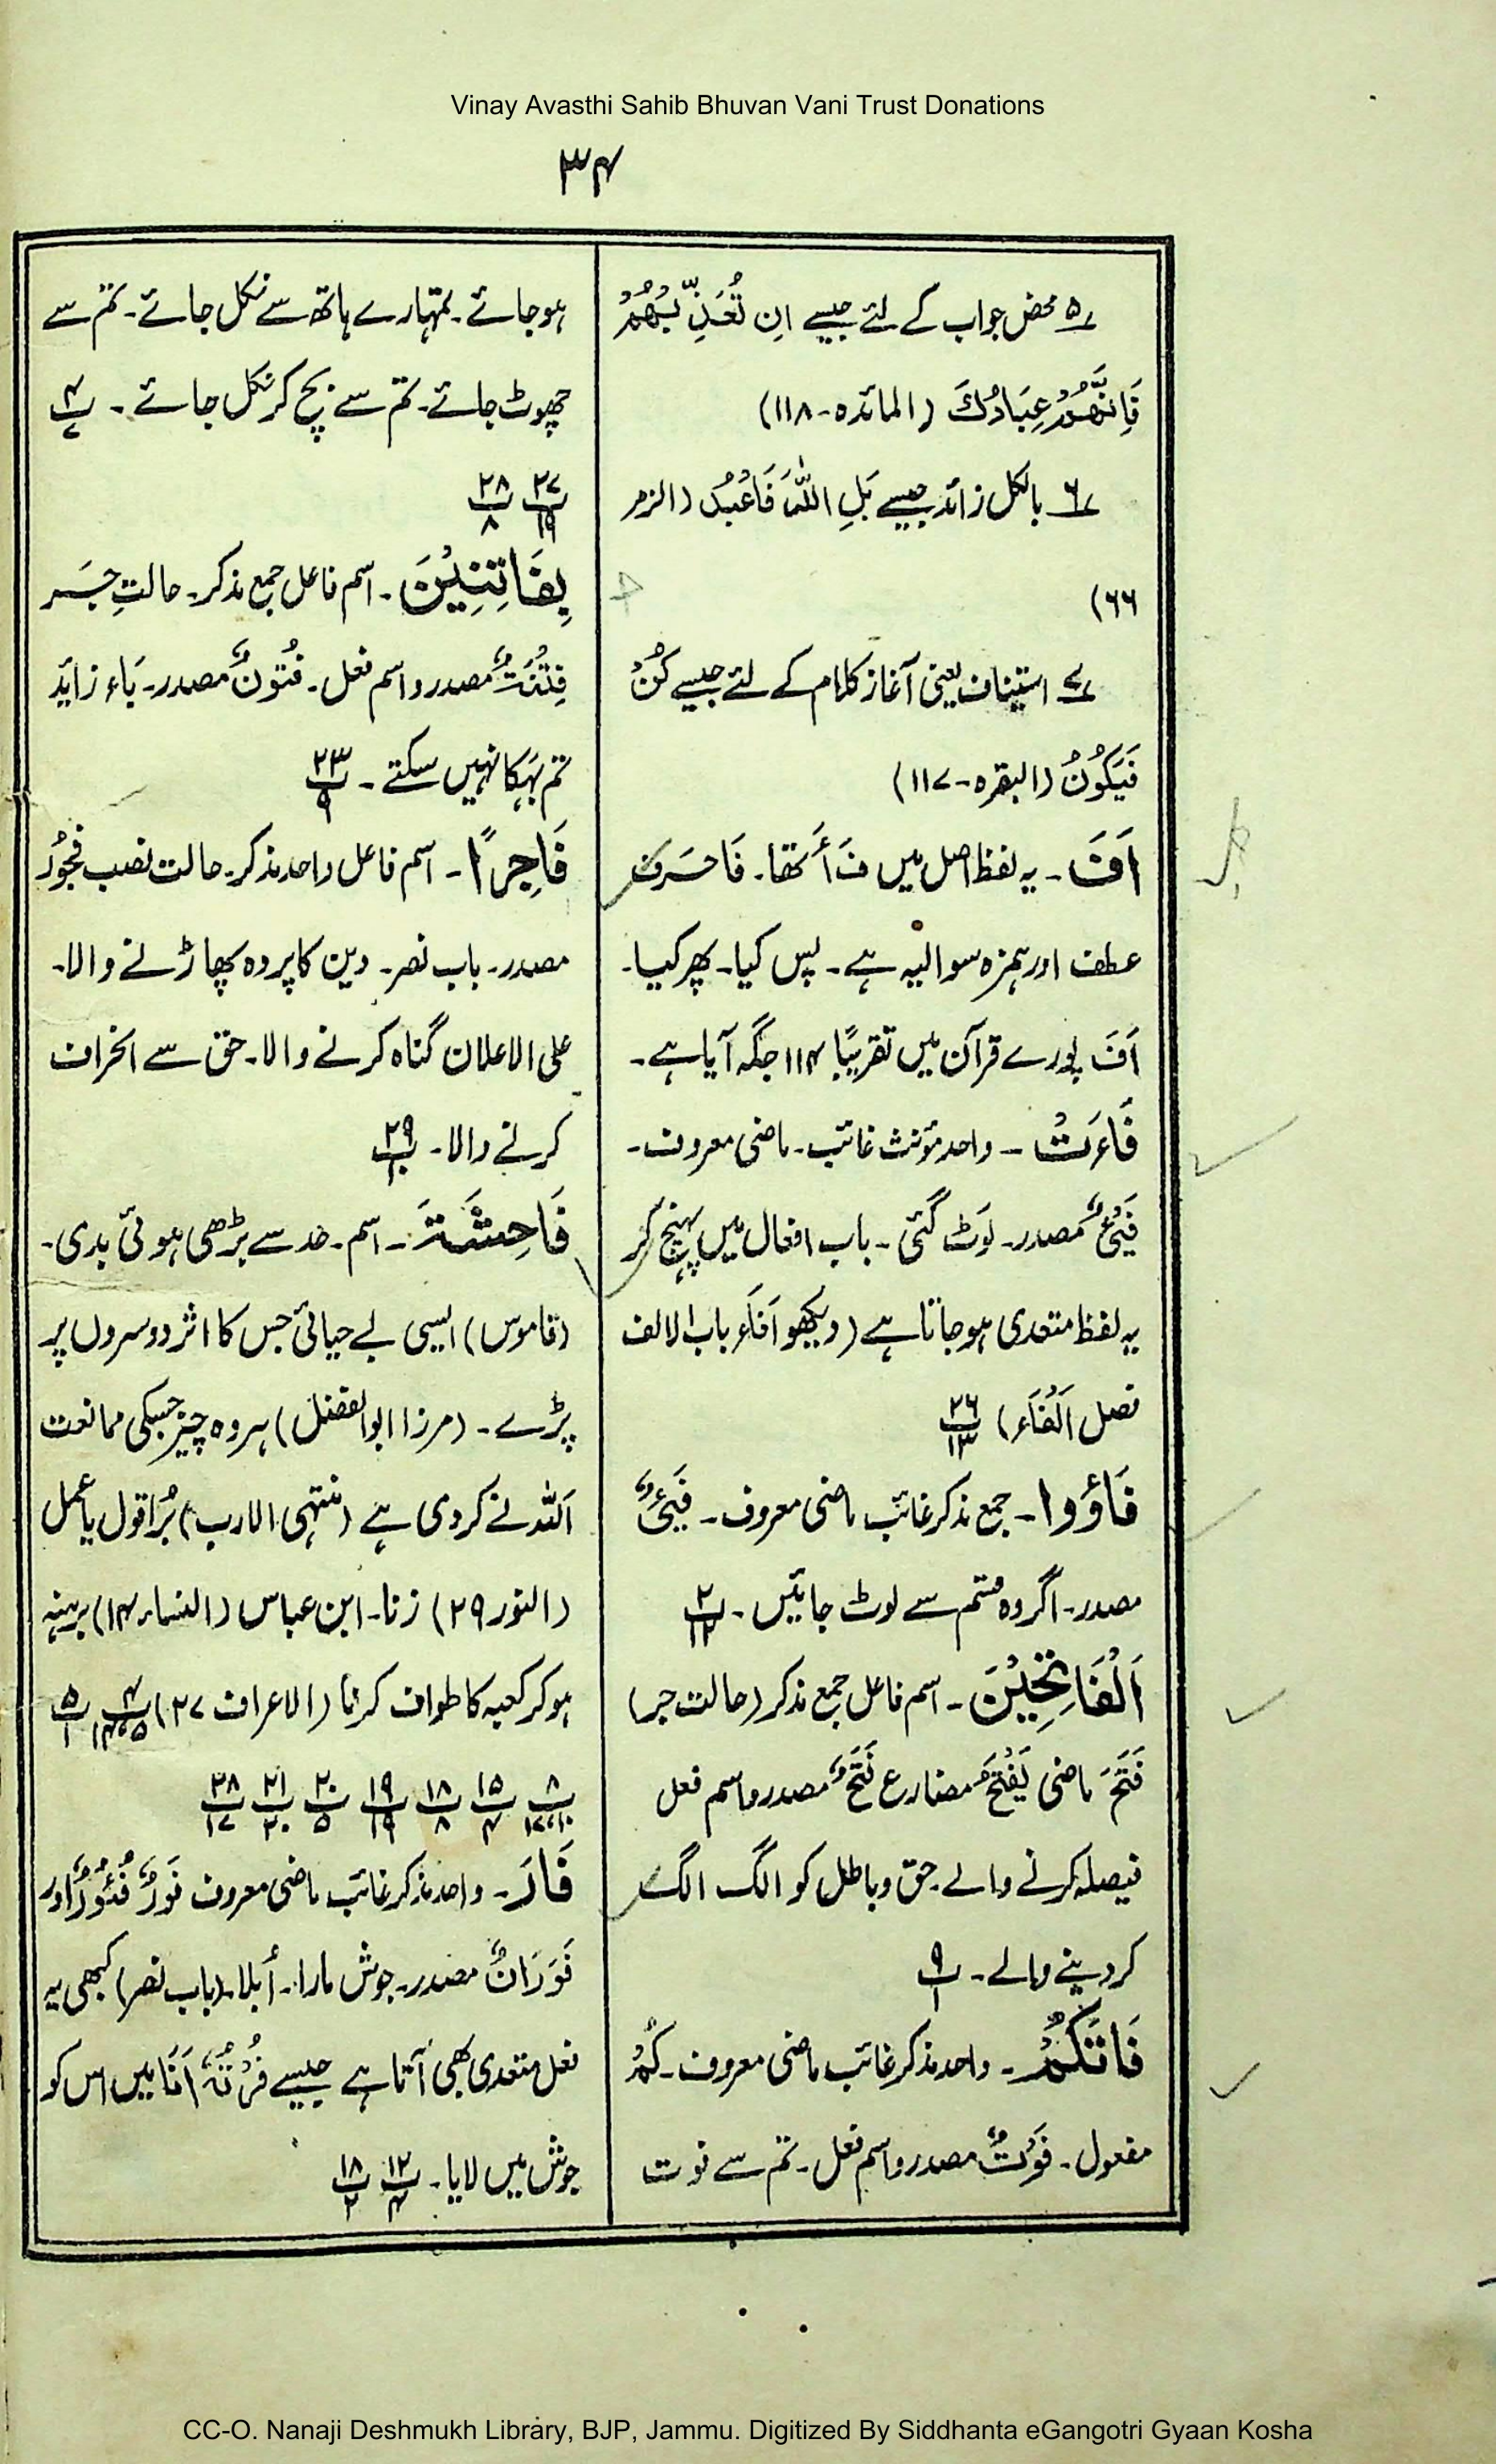 Vinay Avasthi Sahib Bhuvan Vani Trust Donations
۳۴
۵؎ محض جواب کے لئے جیسے اِن تُعَذِّبْهُمْ
فَاِنَّهُمْ عِبَادُكَ (المائدہ-۱۱۸)
۶؎ بالکل زائد جیسے بَلِ اللّٰهَ فَاعْبُدْ (الزمر
۶۶)
۷؎ استیناف یعنی آغاز کلام کے لئے جیسے كُنْ
فَيَكُوْنُ (البقرہ-۱۱۷)
اَفَ۔ یہ لفظ اصل میں فَ أَ تھا۔ فَا حرف
عطف اور ہمزہ سوالیہ ہے۔ پس کیا۔ پھر کیا۔
اَفَ پورے قرآن میں تقریبًا ۱۱۴ جگہ آیا ہے۔
فَاءَتْ ۔ واحد مؤنث غائب۔ ماضی معروف۔
فَيْءٌ مصدر۔ لَوٹ گئی۔ باب افعال میں پہنچ کر
یہ لفظ متعدی ہو جاتا ہے (دیکھو اَفَاءَ باب الالف
فصل اَلْفَاء) ۲۶پ۱۳
فَاؤُوا۔ جمع مذکر غائب ماضی معروف۔ فَيْءٌ
مصدر۔ اگر وہ قسم سے لوٹ جائیں۔ ۲پ۱۲
اَلْفَاتِحِيْنَ۔ اسم فاعل جمع مذکر (حالت جر)
فَتَحَ ماضی يَفْتَحُ مضارع فَتْحٌ مصدر و اسم فعل
فیصلہ کرنے والے۔ حق و باطل کو الگ الگ
کر دینے والے۔ ۹پ۱
فَاتَكُمْ۔ واحد مذکر غائب ماضی معروف۔ كُمْ
مفعول۔ فَوْتٌ مصدر و اسم فعل۔ تم سے فوت
ہو جائے۔ تمہارے ہاتھ سے نکل جائے۔ تم سے
چھوٹ جائے۔ تم سے بچ کر نکل جائے۔ ۴پ۷
۲۷پ۱۹ ۲۸پ۸
بِفَاتِنِيْنَ۔ اسم فاعل جمع مذکر۔ حالتِ جَر
فِتْنَةٌ مصدر و اسم فعل۔ فُتُونٌ مصدر۔ بَاء زاید
تم بہکا نہیں سکتے۔ ۲۳پ۹
فَاجِرًا۔ اسم فاعل واحد مذکر۔ حالت نصب فُجُوْر
مصدر۔ باب نصر۔ دین کا پردہ پھاڑنے والا۔
علی الاعلان گناہ کرنے والا۔ حق سے انحراف
کرنے والا۔ ۲۹پ۱۰
فَاحِشَةَ۔ اسم۔ حد سے بڑھی ہوئی بدی۔
(قاموس) ایسی بے حیائی جس کا اثر دوسروں پر
پڑے۔ (مرزا ابوالفضل) ہر وہ چیز جسکی ممانعت
اَللہ نے کر دی ہے (منتہی الارب) بُرا قول یا عمل
(النور ۲۹) زنا۔ ابن عباس (النساء ۱۴) برہنہ
ہو کر کعبہ کا طواف کرنا (الاعراف ۲۷) ۴پ۵،۱۴ ۵پ۱
۸پ۱۰،۱۷ ۱۵پ۴ ۱۸پ۸ ۱۹پ۱۹ ۲۰پ۵ ۲۱پ۲۰ ۲۸پ۱۷
فَارَ۔ واحد مذکر غائب ماضی معروف فَوْرٌ فُؤُوْرٌ اور
فَوَرَانٌ مصدر۔ جوش مارا۔ اُبلا۔ (باب نصر) کبھی یہ
فعل متعدی بھی آتا ہے جیسے فُرْتُهٗ اَنَا میں اس کو
جوش میں لایا۔ ۱۲پ۴ ۱۸پ۲
CC-O. Nanaji Deshmukh Library, BJP, Jammu. Digitized By Siddhanta eGangotri Gyaan Kosha